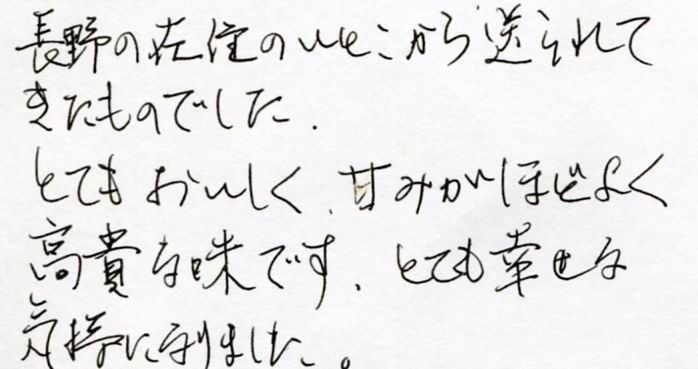 長野の在住のいとこから送られて
きたものでした.
とてもおいしく、甘みがほどよく
高貴な味です、とても幸せな
気持になりました。